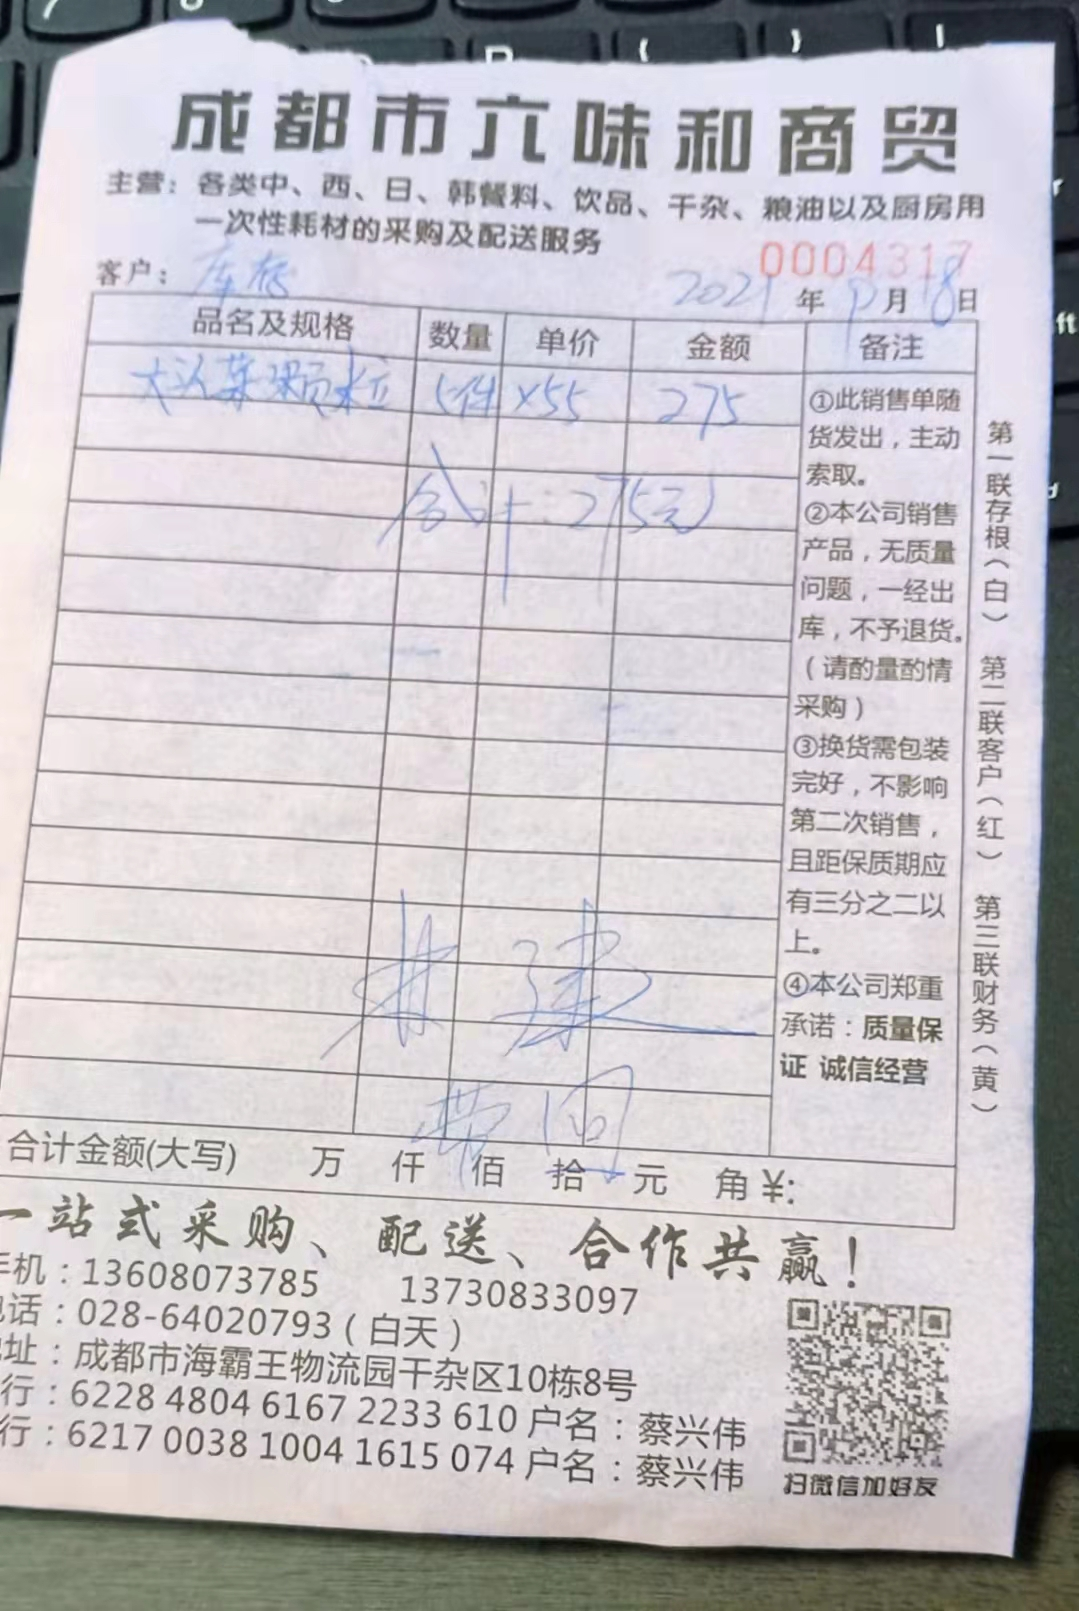 成都市六味和商贸
主营：各类中、西、日、韩餐料、饮品、干杂、粮油以及厨房用
一次性耗材的采购及配送服务
0004317
客户：库存
2021年 月18日
品名及规格 数量 单价 金额 备注
大头菜颗粒 5件 ×55 275
合计：275元
①此销售单随
货发出，主动
索取。
②本公司销售
产品，无质量
问题，一经出
库，不予退货。
（请酌量酌情
采购）
③换货需包装
完好，不影响
第二次销售，
且距保质期应
有三分之二以
上。
④本公司郑重
承诺：质量保
证 诚信经营
第一联存根（白） 第二联客户（红） 第三联财务（黄）
合计金额(大写) 万 仟 佰 拾 元 角 ¥:
一站式采购、配送、合作共赢！
手机：13608073785 13730833097
电话：028-64020793（白天）
地址：成都市海霸王物流园干杂区10栋8号
行：6228 4804 6167 2233 610 户名：蔡兴伟
行：6217 0038 1004 1615 074 户名：蔡兴伟
扫微信加好友